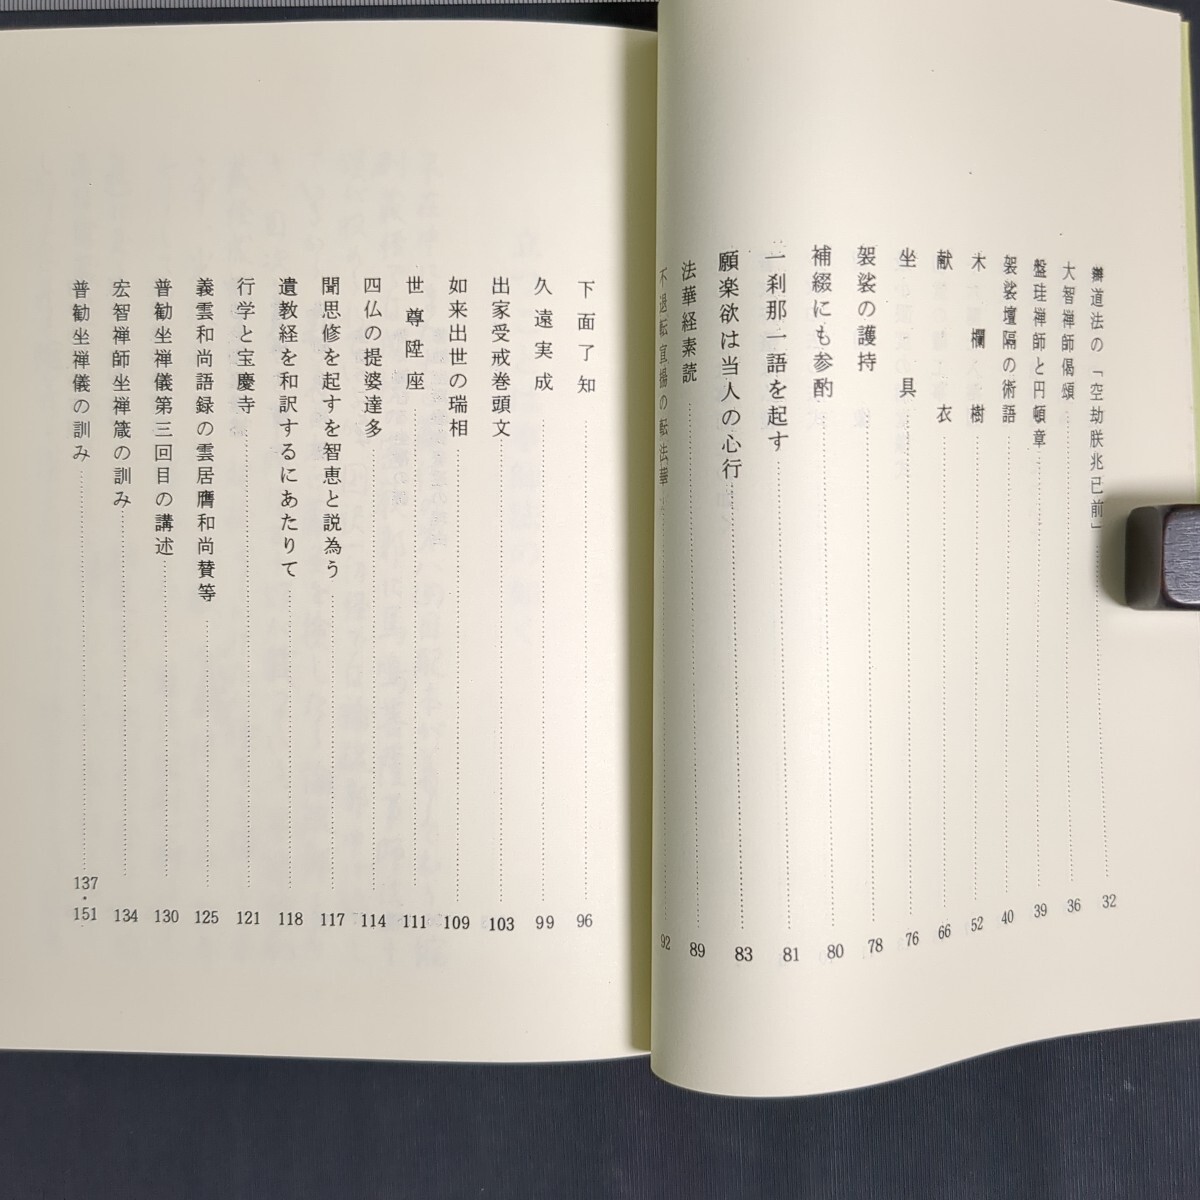 辨道法の「空劫朕兆已前」 32
大智禅師偈頌 36
盤珪禅師と円頓章 39
袈裟壇隔の術語 40
木欄樹 52
献衣 66
坐具 76
袈裟の護持 78
補綴にも参酌 80
一刹那一語を起す 81
願楽欲は当人の心行 83
法華経素読 89
不退転宣揚の転法華 92
下面了知 96
久遠実成 99
出家受戒巻頭文 103
如来出世の瑞相 109
世尊陞座 111
四仏の提婆達多 114
聞思修を起すを智恵と説為う 117
遺教経を和訳するにあたりて 118
行学と宝慶寺 121
義雲和尚語録の雲居膺和尚賛等 125
普勧坐禅儀第三回目の講述 130
宏智禅師坐禅箴の訓み 134
普勧坐禅儀の訓み 137・151